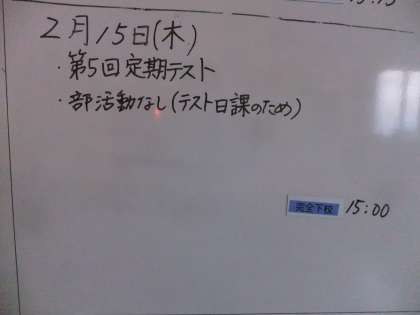 2月15日(木)
・第5回定期テスト
・部活動なし(テスト日課のため)
完全下校 15:00